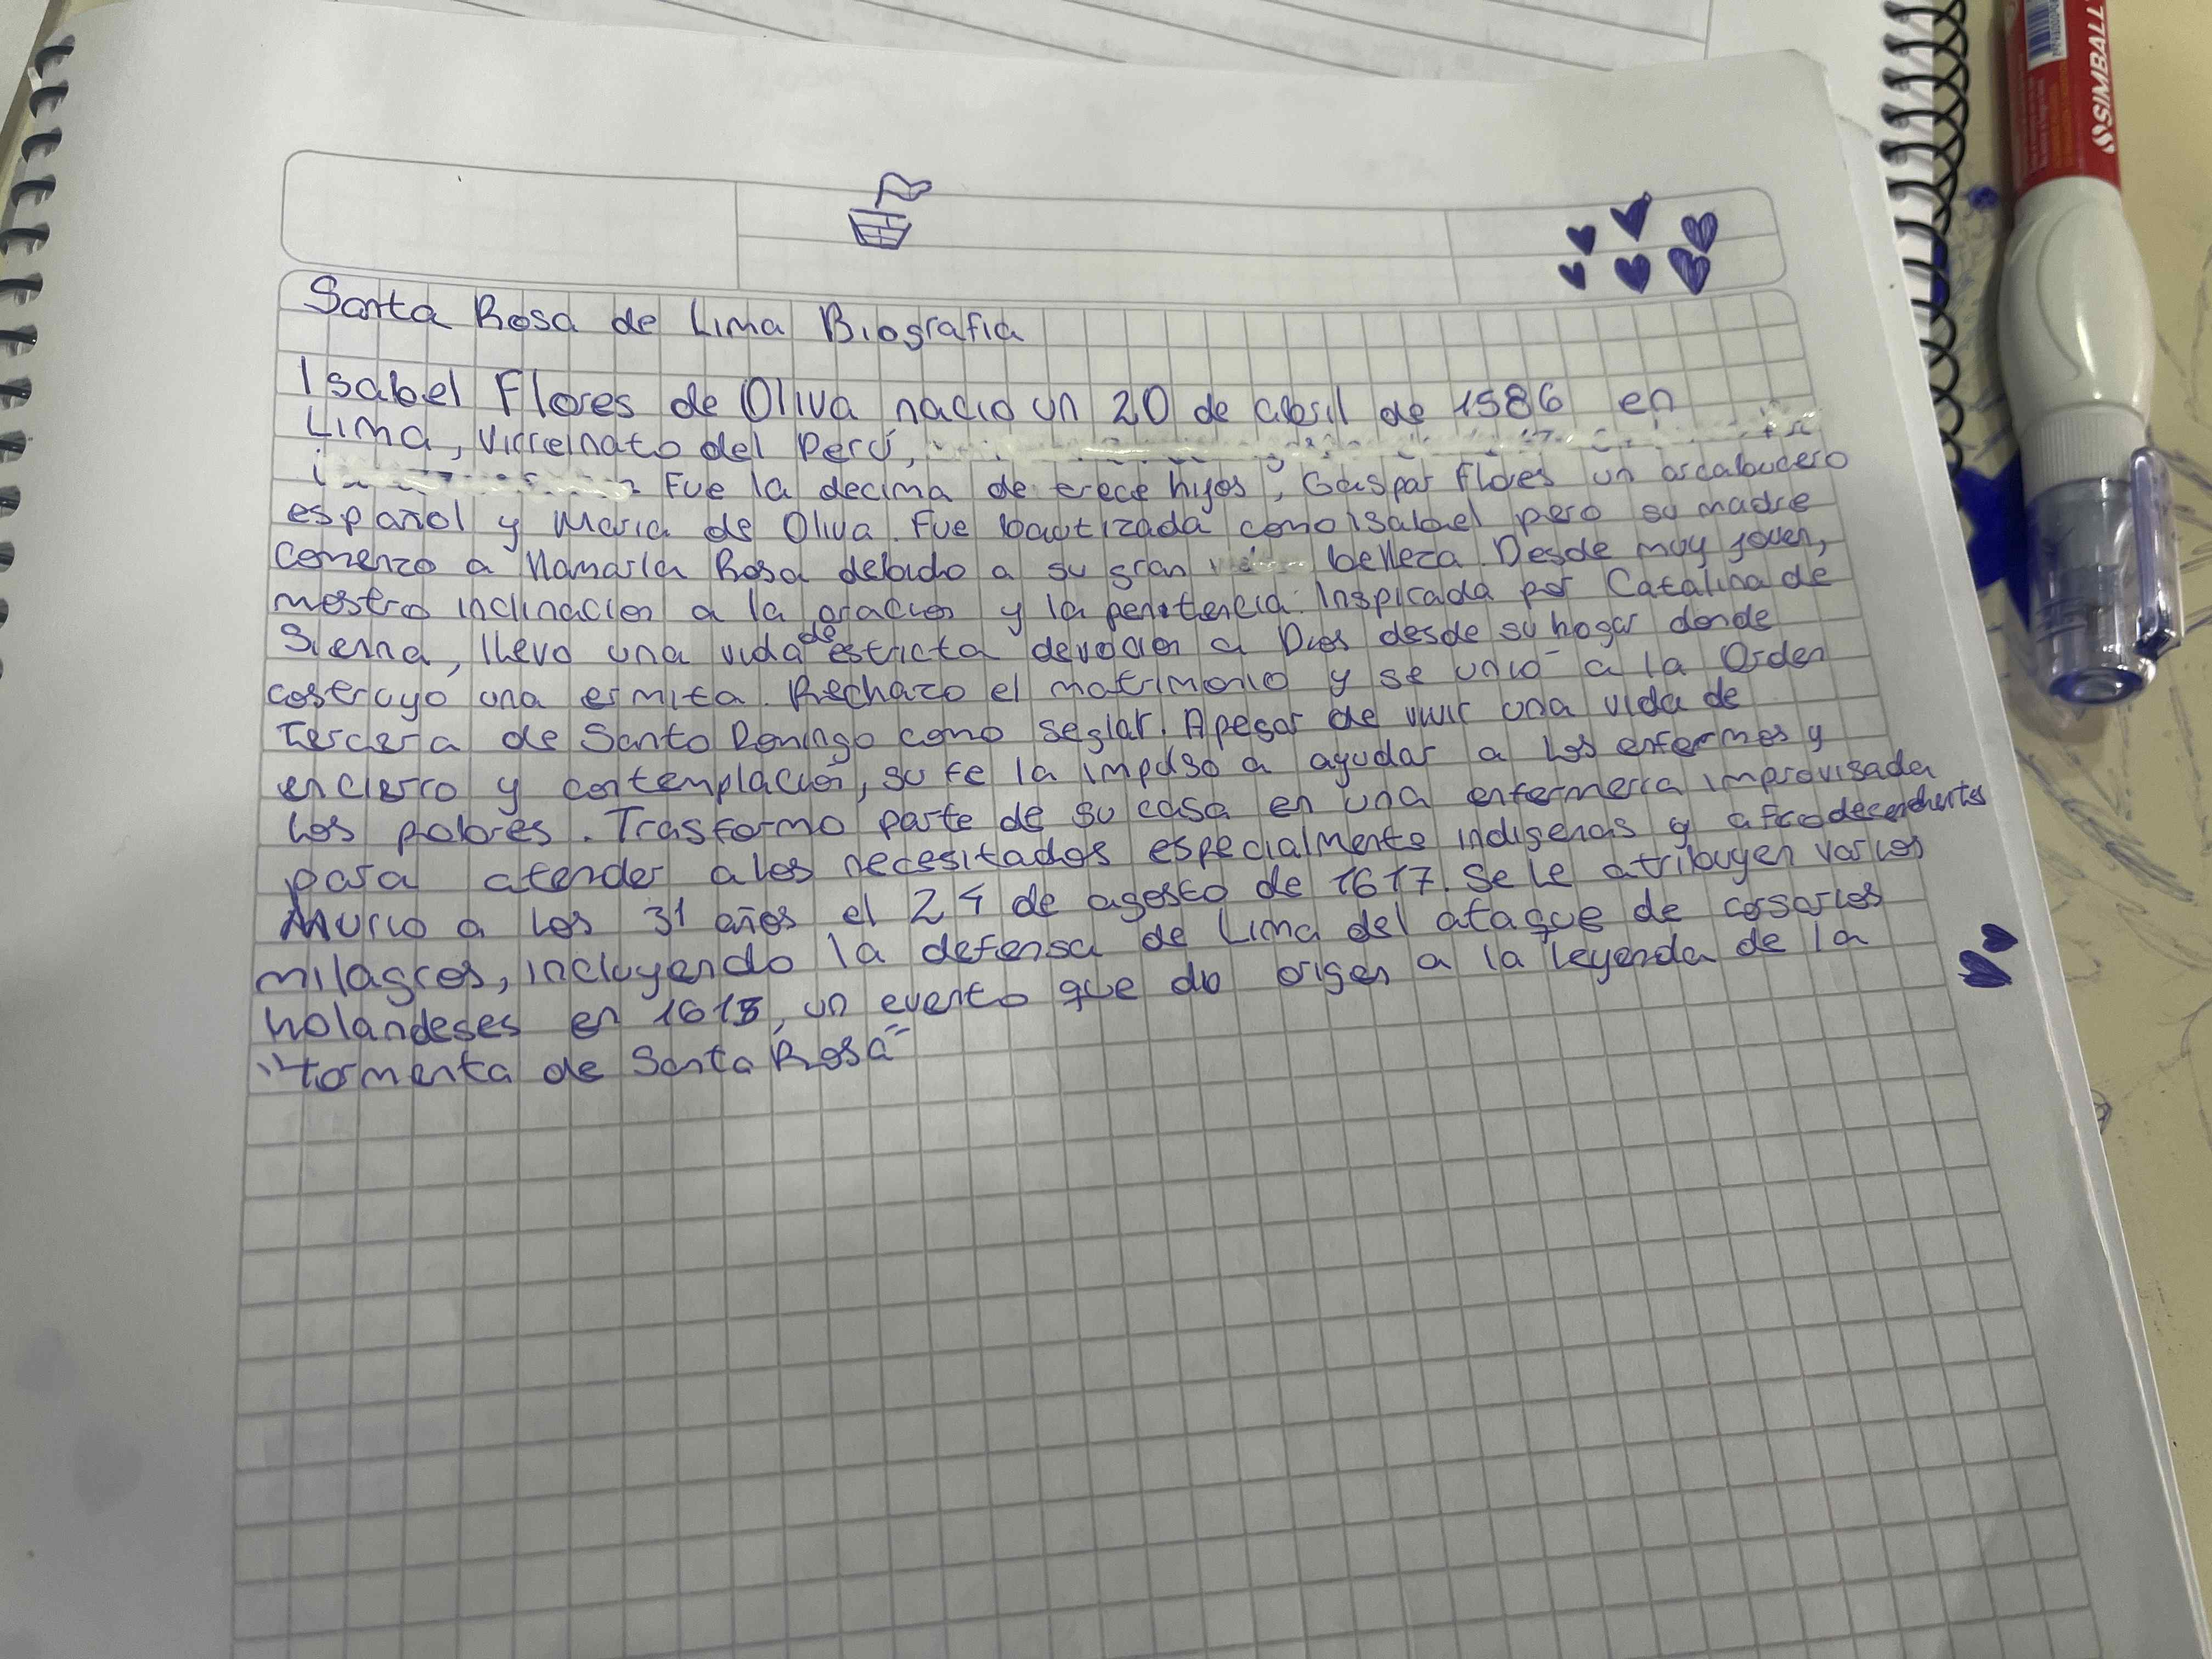 Santa Rosa de Lima Biografia
Isabel Flores de Oliva nacio un 20 de abril de 1586 en
Lima, Virreinato del Perú,
Fue la decima de trece hijos, Gaspar Flores un arcabucero
español y Maria de Oliva. Fue bautizada como Isabel pero su madre
comenzo a llamarla Rosa debido a su gran belleza. Desde muy joven,
mostro inclinacion a la oracion y la penitencia. Inspirada por Catalina de
Siena, llevo una vida de estricta devocion a Dios desde su hogar donde
costruyo una ermita. Rechazo el matrimonio y se unio a la Orden
Tercera de Santo Domingo como seglar. Apesar de vivir una vida de
encierro y contemplación, su fe la impulso a ayudar a los enfermos y
los pobres. Trasformo parte de su casa en una enfermeria improvisada
para atender a los necesitados especialmente indigenas y afrodecendientes
Murio a los 31 años el 24 de agosto de 1617. Se le atribuyen varios
milagros, incluyendo la defensa de Lima del ataque de corsarios
holandeses en 1615, un evento que dio origen a la leyenda de la
"tormenta de Santa Rosa"
SIMBALL